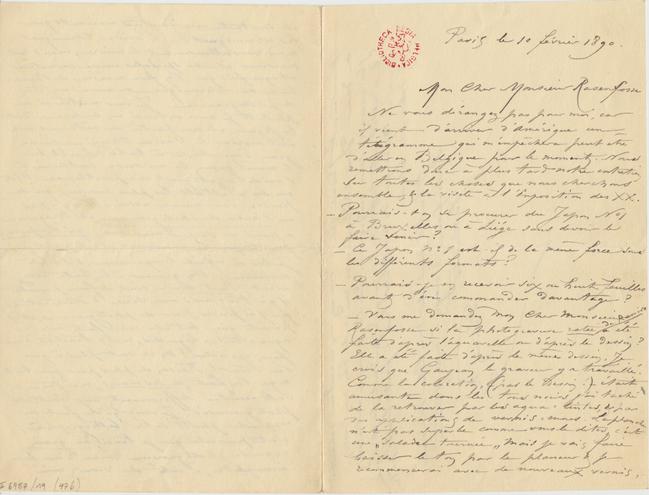 Paris le 10 février 1890.
Mon Cher Monsieur Rasenfosse
Ne vous dérangez pas pour moi, car
il vient d'arriver d'Amérique un
télégramme qui m'empêchera peut être
d'aller en Belgique pour le moment. Nous
remettrons donc à plus tard notre entretien
sur toutes les choses que nous cherchons
ensemble, & la visite à l'Exposition des XX.
- Pourrais-t-on se procurer du Japon No 1
à Bruxelles, ou à Liége sans devoir le
faire venir?
- Ce Japon No 1 est-il de la même force sous
les différents formats?
- Pourrais-je en recevoir six ou huit feuilles
avant d'en commander davantage?
- Vous me demandez Mon Cher Monsieur
Rasenfosse si la photogravure ratée a été
faite d'après l'aquarelle ou d'après le dessin?
Elle a été faite d'après le même dessin. Je
crois que Gaujean le graveur y a travaillé.
Comme la collection, (pas le Dessin!) était
amusante dans les tons noirs j'ai tâché
de la retrouver par les aqua-tintes & par
des applications de vernis-mous. La planche
n'est pas superbe comme vous le dites, c'est
une „salade tournée" mais je vais faire
baisser le ton par le planeur & je
recommencerai avec de nouveaux vernis,
BIBLIOTHECA REGIA BELGICA
II 6957/19 (476)